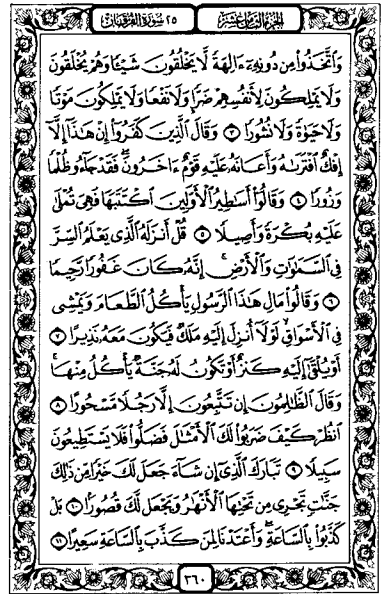 الجزء الثامن عشر
٢٥ سورة الفرقان
وَاتَّخَذُوا مِن دُونِهِ ءَالِهَةً لَّا يَخْلُقُونَ شَيْئًا وَهُمْ يُخْلَقُونَ
وَلَا يَمْلِكُونَ لِأَنفُسِهِمْ ضَرًّا وَلَا نَفْعًا وَلَا يَمْلِكُونَ مَوْتًا
وَلَا حَيَوٰةً وَلَا نُشُورًا ٣ وَقَالَ الَّذِينَ كَفَرُوا إِنْ هَٰذَا إِلَّا
إِفْكٌ افْتَرَىٰهُ وَأَعَانَهُ عَلَيْهِ قَوْمٌ ءَاخَرُونَ ۖ فَقَدْ جَاءُو ظُلْمًا
وَزُورًا ٤ وَقَالُوا أَسَاطِيرُ الْأَوَّلِينَ اكْتَتَبَهَا فَهِيَ تُمْلَىٰ
عَلَيْهِ بُكْرَةً وَأَصِيلًا ٥ قُلْ أَنزَلَهُ الَّذِي يَعْلَمُ السِّرَّ
فِي السَّمَٰوَٰتِ وَالْأَرْضِ ۚ إِنَّهُ كَانَ غَفُورًا رَّحِيمًا
٦ وَقَالُوا مَالِ هَٰذَا الرَّسُولِ يَأْكُلُ الطَّعَامَ وَيَمْشِي
فِي الْأَسْوَاقِ ۙ لَوْلَا أُنزِلَ إِلَيْهِ مَلَكٌ فَيَكُونَ مَعَهُ نَذِيرًا ٧
أَوْ يُلْقَىٰ إِلَيْهِ كَنزٌ أَوْ تَكُونُ لَهُ جَنَّةٌ يَأْكُلُ مِنْهَا ۚ
وَقَالَ الظَّٰلِمُونَ إِن تَتَّبِعُونَ إِلَّا رَجُلًا مَّسْحُورًا ٨
انظُرْ كَيْفَ ضَرَبُوا لَكَ الْأَمْثَٰلَ فَضَلُّوا فَلَا يَسْتَطِيعُونَ
سَبِيلًا ٩ تَبَارَكَ الَّذِي إِن شَاءَ جَعَلَ لَكَ خَيْرًا مِّن ذَٰلِكَ
جَنَّٰتٍ تَجْرِي مِن تَحْتِهَا الْأَنْهَٰرُ وَيَجْعَل لَّكَ قُصُورًا ١٠ بَلْ
كَذَّبُوا بِالسَّاعَةِ ۖ وَأَعْتَدْنَا لِمَن كَذَّبَ بِالسَّاعَةِ سَعِيرًا ١١
٣٦٠